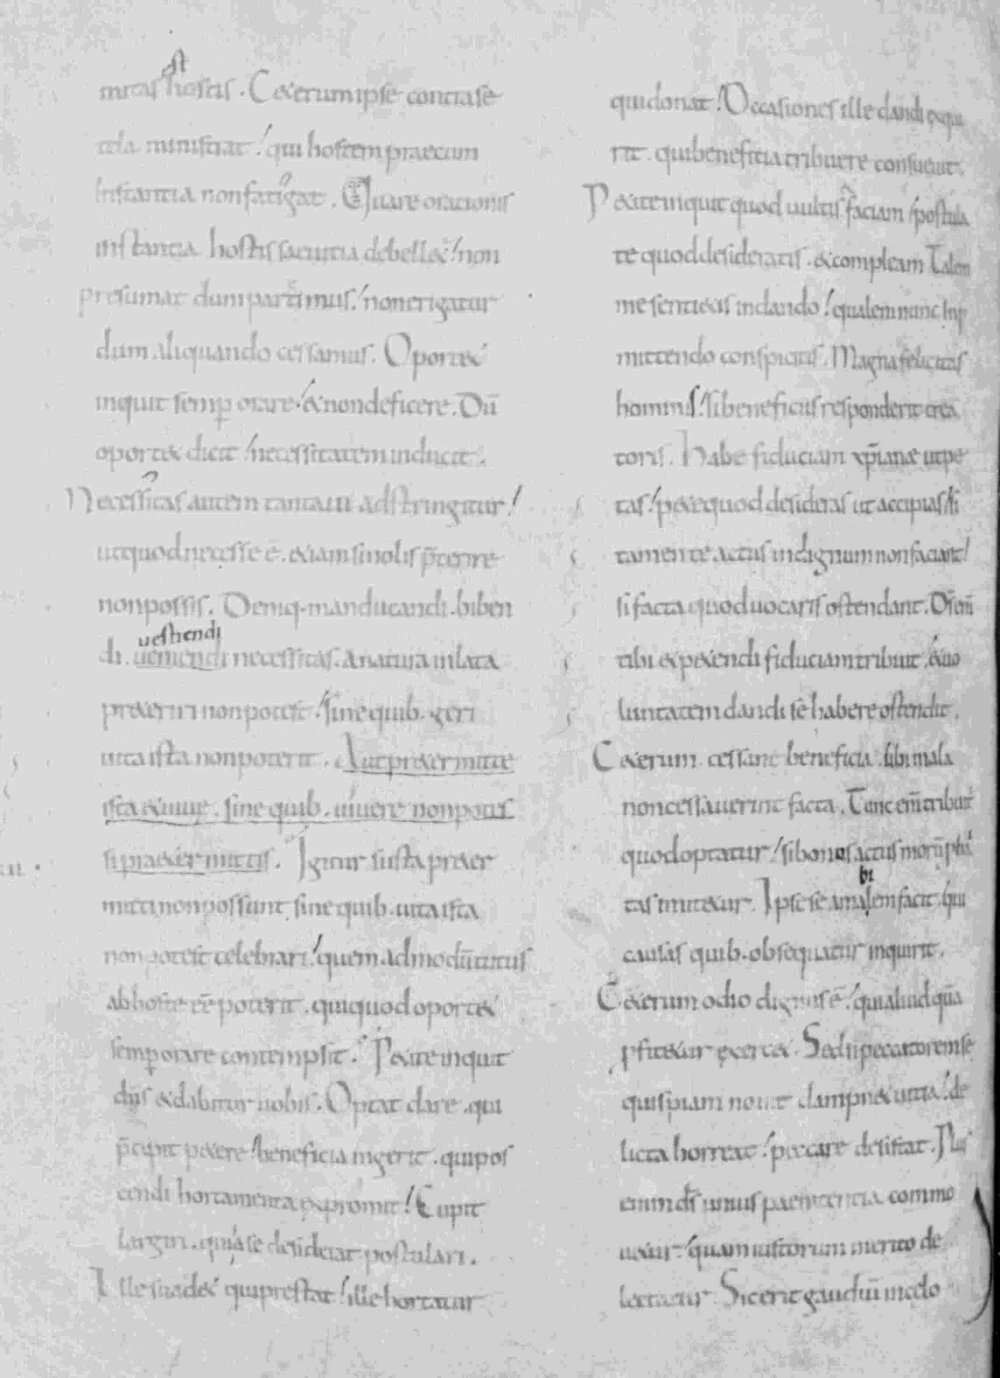 mitas hostis. Ceterum ipse contra se
st
tela ministrat. qui hostem praecum
Instantia non fatigat. Quare orationis
instantia hostis saeuitia debelletur. non
presumat dum partimus. non erigatur
dum aliquando cessamus. Oportet
inquit semp orare. & non deficere. Dū
oport& dicit necessitatem inducit.
Necessitas autem tanta ui adstringitur
ut quod necesse ē. &iam si nolis p̄terire
non possis. Deniq. manducandi. biben
uestiendi
di. ueniendi necessitas. a natura inlata
pr&eriri non potest. sine quib. geri
uita ista non poterit. Aut pr&ermitte
ista & uiue. sine quib. uiuere non potes
si pra&ermittis. Igitur si ista pr&er
mitti non possunt sine quib. uita ista
non potest celebrari. quem admodū tutus
ab hoste eē poterit. qui quod oport&
semp orare contempsit. P&ite inquit
dn̄s & dabitur uobis. Optat dare. qui
p̄cepit p&ere. beneficia ingerit. qui pos
cendi hortamenta expromit. Cupit
largiri. qui a se desiderat postulari.
Ille suad& qui prestat. ille hortatur
qui donat. Occasiones ille dandi exqui
rit. qui beneficia tribuere consueuit.
P&ite inquit quod uultis & faciam. postula
te quod desideratis. & compleam Talem
me senti&is in dando. qualem nunc Inp
mittendo conspicitis. Magna felicitas
hominis. si beneficus responderit crea
toris. Habe fiduciam xp̄iane ut pe
tas. p&e quod desideras ut accipias. si
tamen te actus indignum non faciant
si facta quod uocaris ostendant. Ds̄ enī
tibi & p&endi fiduciam tribuit. & uo
luntatem dandi se habere ostendit.
C&erum cessant beneficia. sibi mala
non cessauerint facta. Tunc enī tribuit
quod optatur. si bonos actus morū phi
tas imit&ur. Ipse se amalem facit. qui
bi
causas quib. obsequatur inquirit.
C&erum odio dignus ē. qui aliud quā
pfit&ur exerc&. Sed si peccatorem se
quispiam nouit dampn& uitia. de
licta horreat. peccare desistat. Plus
enim ds̄ unius paenitentia commo
u&ur. quam iustorum merito de
lectatur. Sic erit gaudiū in celo